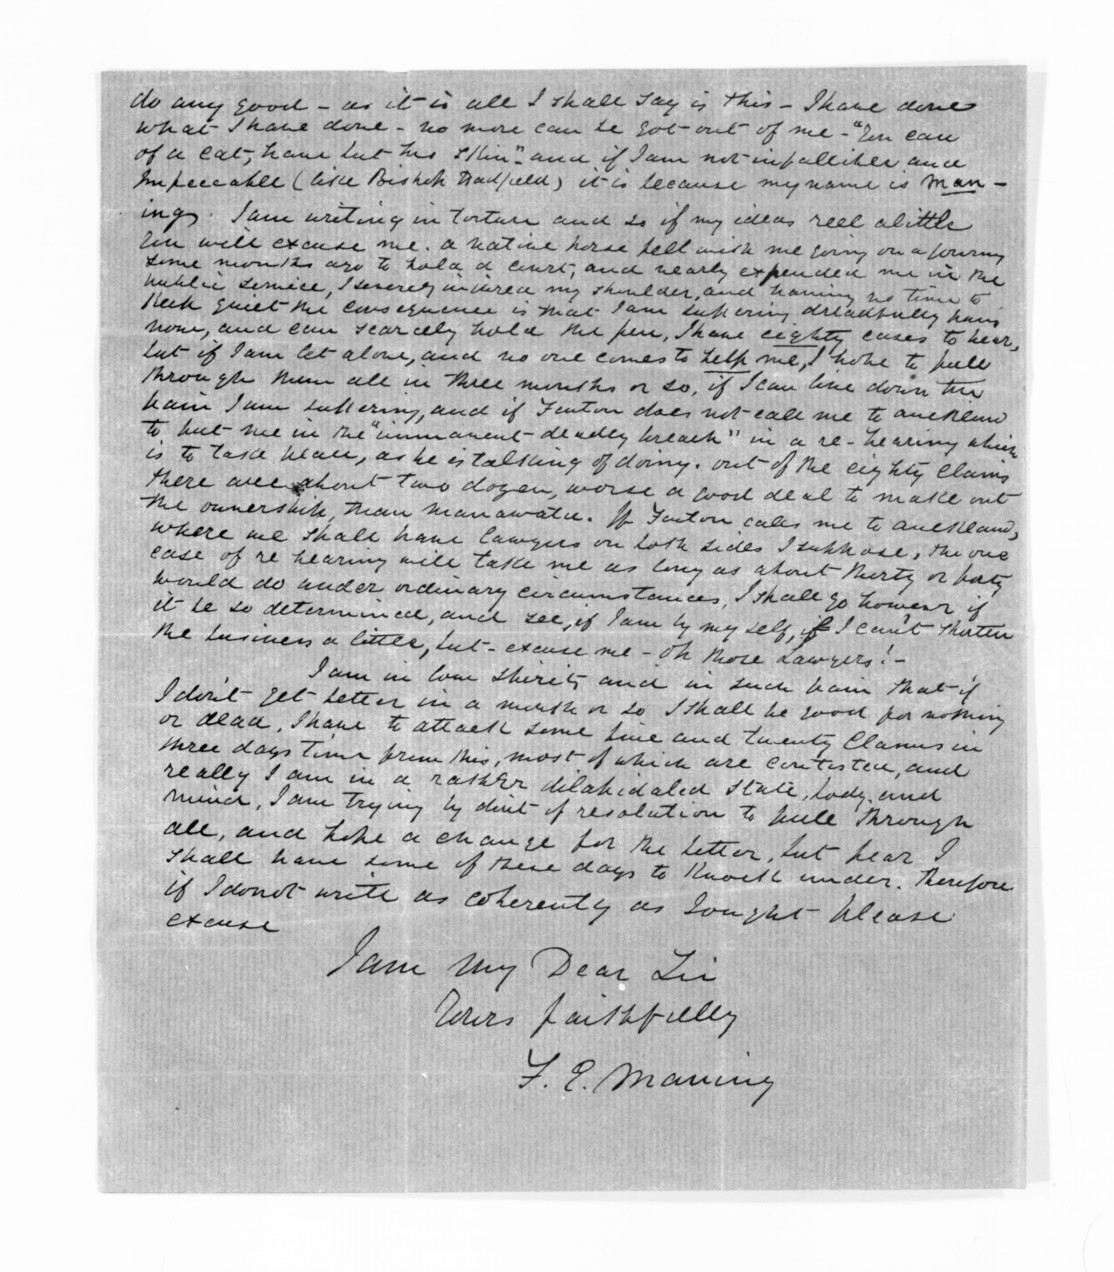 do any good – as it is all I shall say is this – I have done
what I have done – no more can be got out of me – "You can
of a cat, have but his skin" – and if I am not infallible and
Impeccable (like Bishop Hadfield) it is because my name is Man –
ing. I am writing in torture and so if my ideas reel a little
You will excuse me. a native horse fell with me going on a journey
some months ago to hold a court, and nearly expended me in the
public service, I severely injured my shoulder, and having no time to
keep quiet the consequence is that I am suffering dreadfully
now, and can scarcely hold the pen, I have eighty cases to hear,
but if I am let alone, and no one comes to help me, I hope to pull
through them all in three months or so, if I can live down the
pain I am suffering, and if Fenton does not call me to auckland
to put me in the "immanent deadly breach" in a re-hearing which
is to take place, as he is talking of doing. out of the eighty Claims
there are about two dozen, worse a good deal to make out
the ownership, than manawatu. If Fenton calls me to auckland,
where we shall have lawyers on both sides I suppose, the one
case of re hearing will take me as long as about thirty or forty
would do under ordinary circumstances, I shall go however if
it be so determined, and see, if I am by my self, if I can't shorten
the business a little, but – excuse me – oh those Lawyers! –
I am in low spirits and in such pain that if
I don't get better in a month or so I shall be good for nothing
or dead, I have to attack some five and twenty Claims in
three days time from this, most of which are contested, and
really I am in a rather dilapidated state, body and
mind, I am trying by dint of resolution to pull through
all, and hope a change for the better, but fear I
shall have some of these days to knock under. Therefore
if I do not write as coherently as I ought please
excuse
I am My Dear Sir
Yours faithfully
F. E. Maning